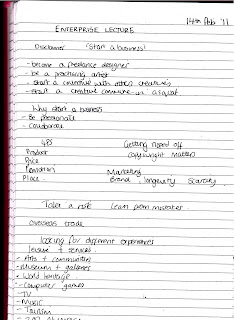 14th Feb '11
ENTERPRISE LECTURE
Disclaimer 'Start a business'
- become a freelance designer
- be a practising artist
- start a creative with other creatives
- start a creative commune in a squat
Why start a business
- Be personable
- Collaborate
4Ps Getting ripped off
Product copyright matters
Price
Promotion Marketing
Place. Brand longevity Scarcity
Take a risk Learn from mistakes
Overseas trade
looking for different experiences
leisure + services
- Arts + communities
- Museums + galleries
- World heritage
- Computer games
- TV
- Music
- Tourism